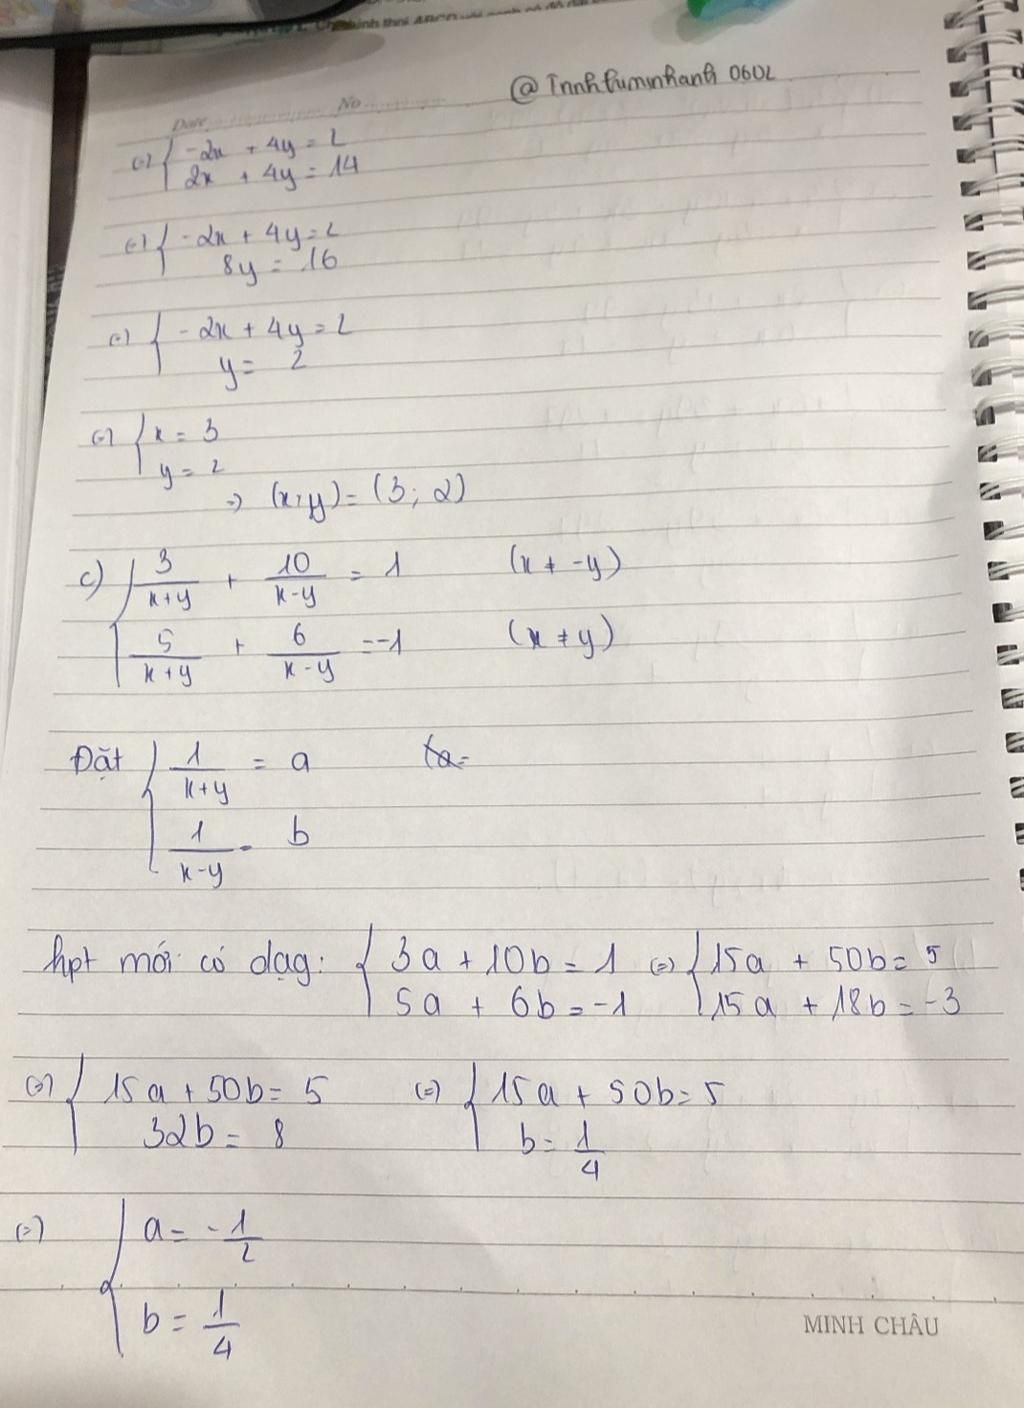 @ Tnnhtuminhanh 0602
Date No
(=) { -2x + 4y = 2
2x + 4y = 14
(=) { -2x + 4y = 2
8y = 16
(=) { -2x + 4y = 2
y = 2
(=) { x = 3
y = 2
=> (x;y) = (3; 2)
c) { 3/(x+y) + 10/(x-y) = 1 (x ≠ -y)
5/(x+y) + 6/(x-y) = -1 (x ≠ y)
Đặt { 1/(x+y) = a
1/(x-y) = b
hpt mới có dạg: { 3a + 10b = 1 (=) { 15a + 50b = 5
5a + 6b = -1 15a + 18b = -3
(=) { 15a + 50b = 5 (=) { 15a + 50b = 5
32b = 8 b = 1/4
(=) { a = -1/2
b = 1/4
MINH CHÂU